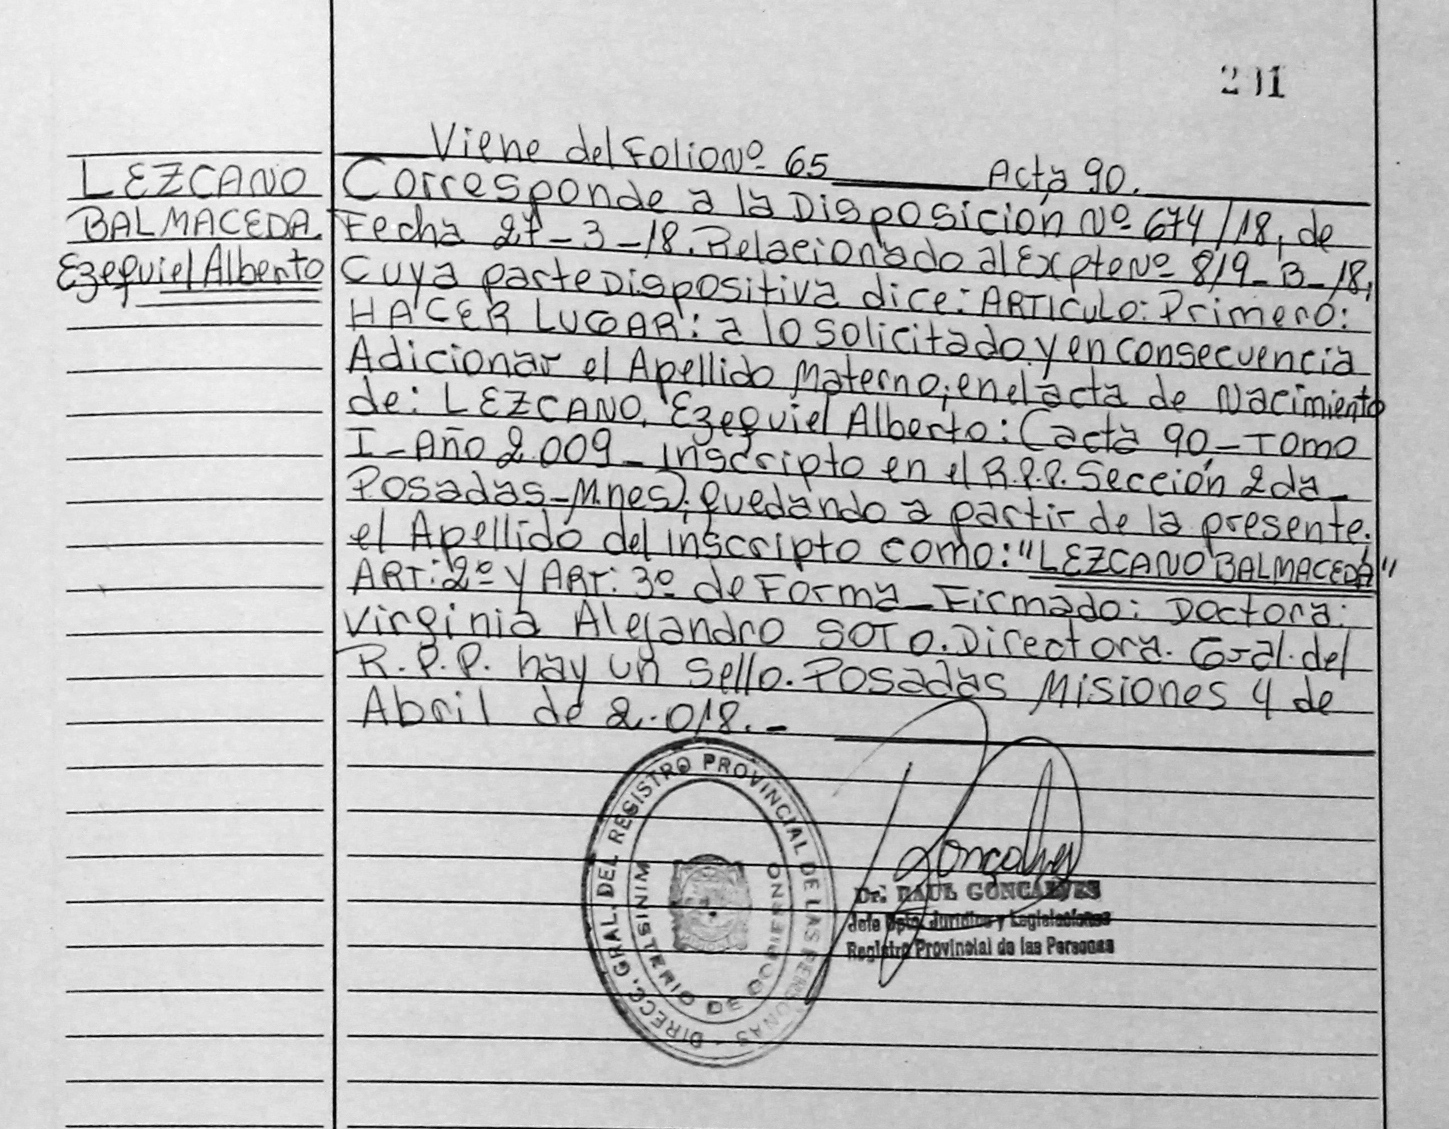 201
Viene del Folio Nº 65 Acta 90.
LEZCANO
BALMACEDA.
Ezequiel Alberto
Corresponde a la Disposición Nº 674/18, de
Fecha 27-3-18. Relacionado al Expte Nº 819-B-18,
Cuya parte Dispositiva dice: ARTICULO: Primero:
HACER LUGAR: a lo solicitado y en consecuencia
Adicionar el Apellido Materno; en el acta de Nacimiento
de: LEZCANO, Ezequiel Alberto: (acta 90-Tomo
I-Año 2.009_ Inscripto en el R.P.P. Sección 2da_
Posadas-Mnes); quedando a partir de la presente.
el Apellido del inscripto como: "LEZCANO BALMACEDA"
ART: 2º y ART: 3º de Forma_Firmado: Doctora:
Virginia Alejandro SOTO. Directora. Gral. del
R.P.P. hay un sello. Posadas Misiones 4 de
Abril de 2.018.-
DIRECC. GRAL. DEL REGISTRO PROVINCIAL DE LAS PERSONAS
MINISTERIO DE GOBIERNO
Goncalves
Dr. RAUL GONCALVES
Jefe Dpto. Jurídico y Legislaciones
Registro Provincial de las Personas